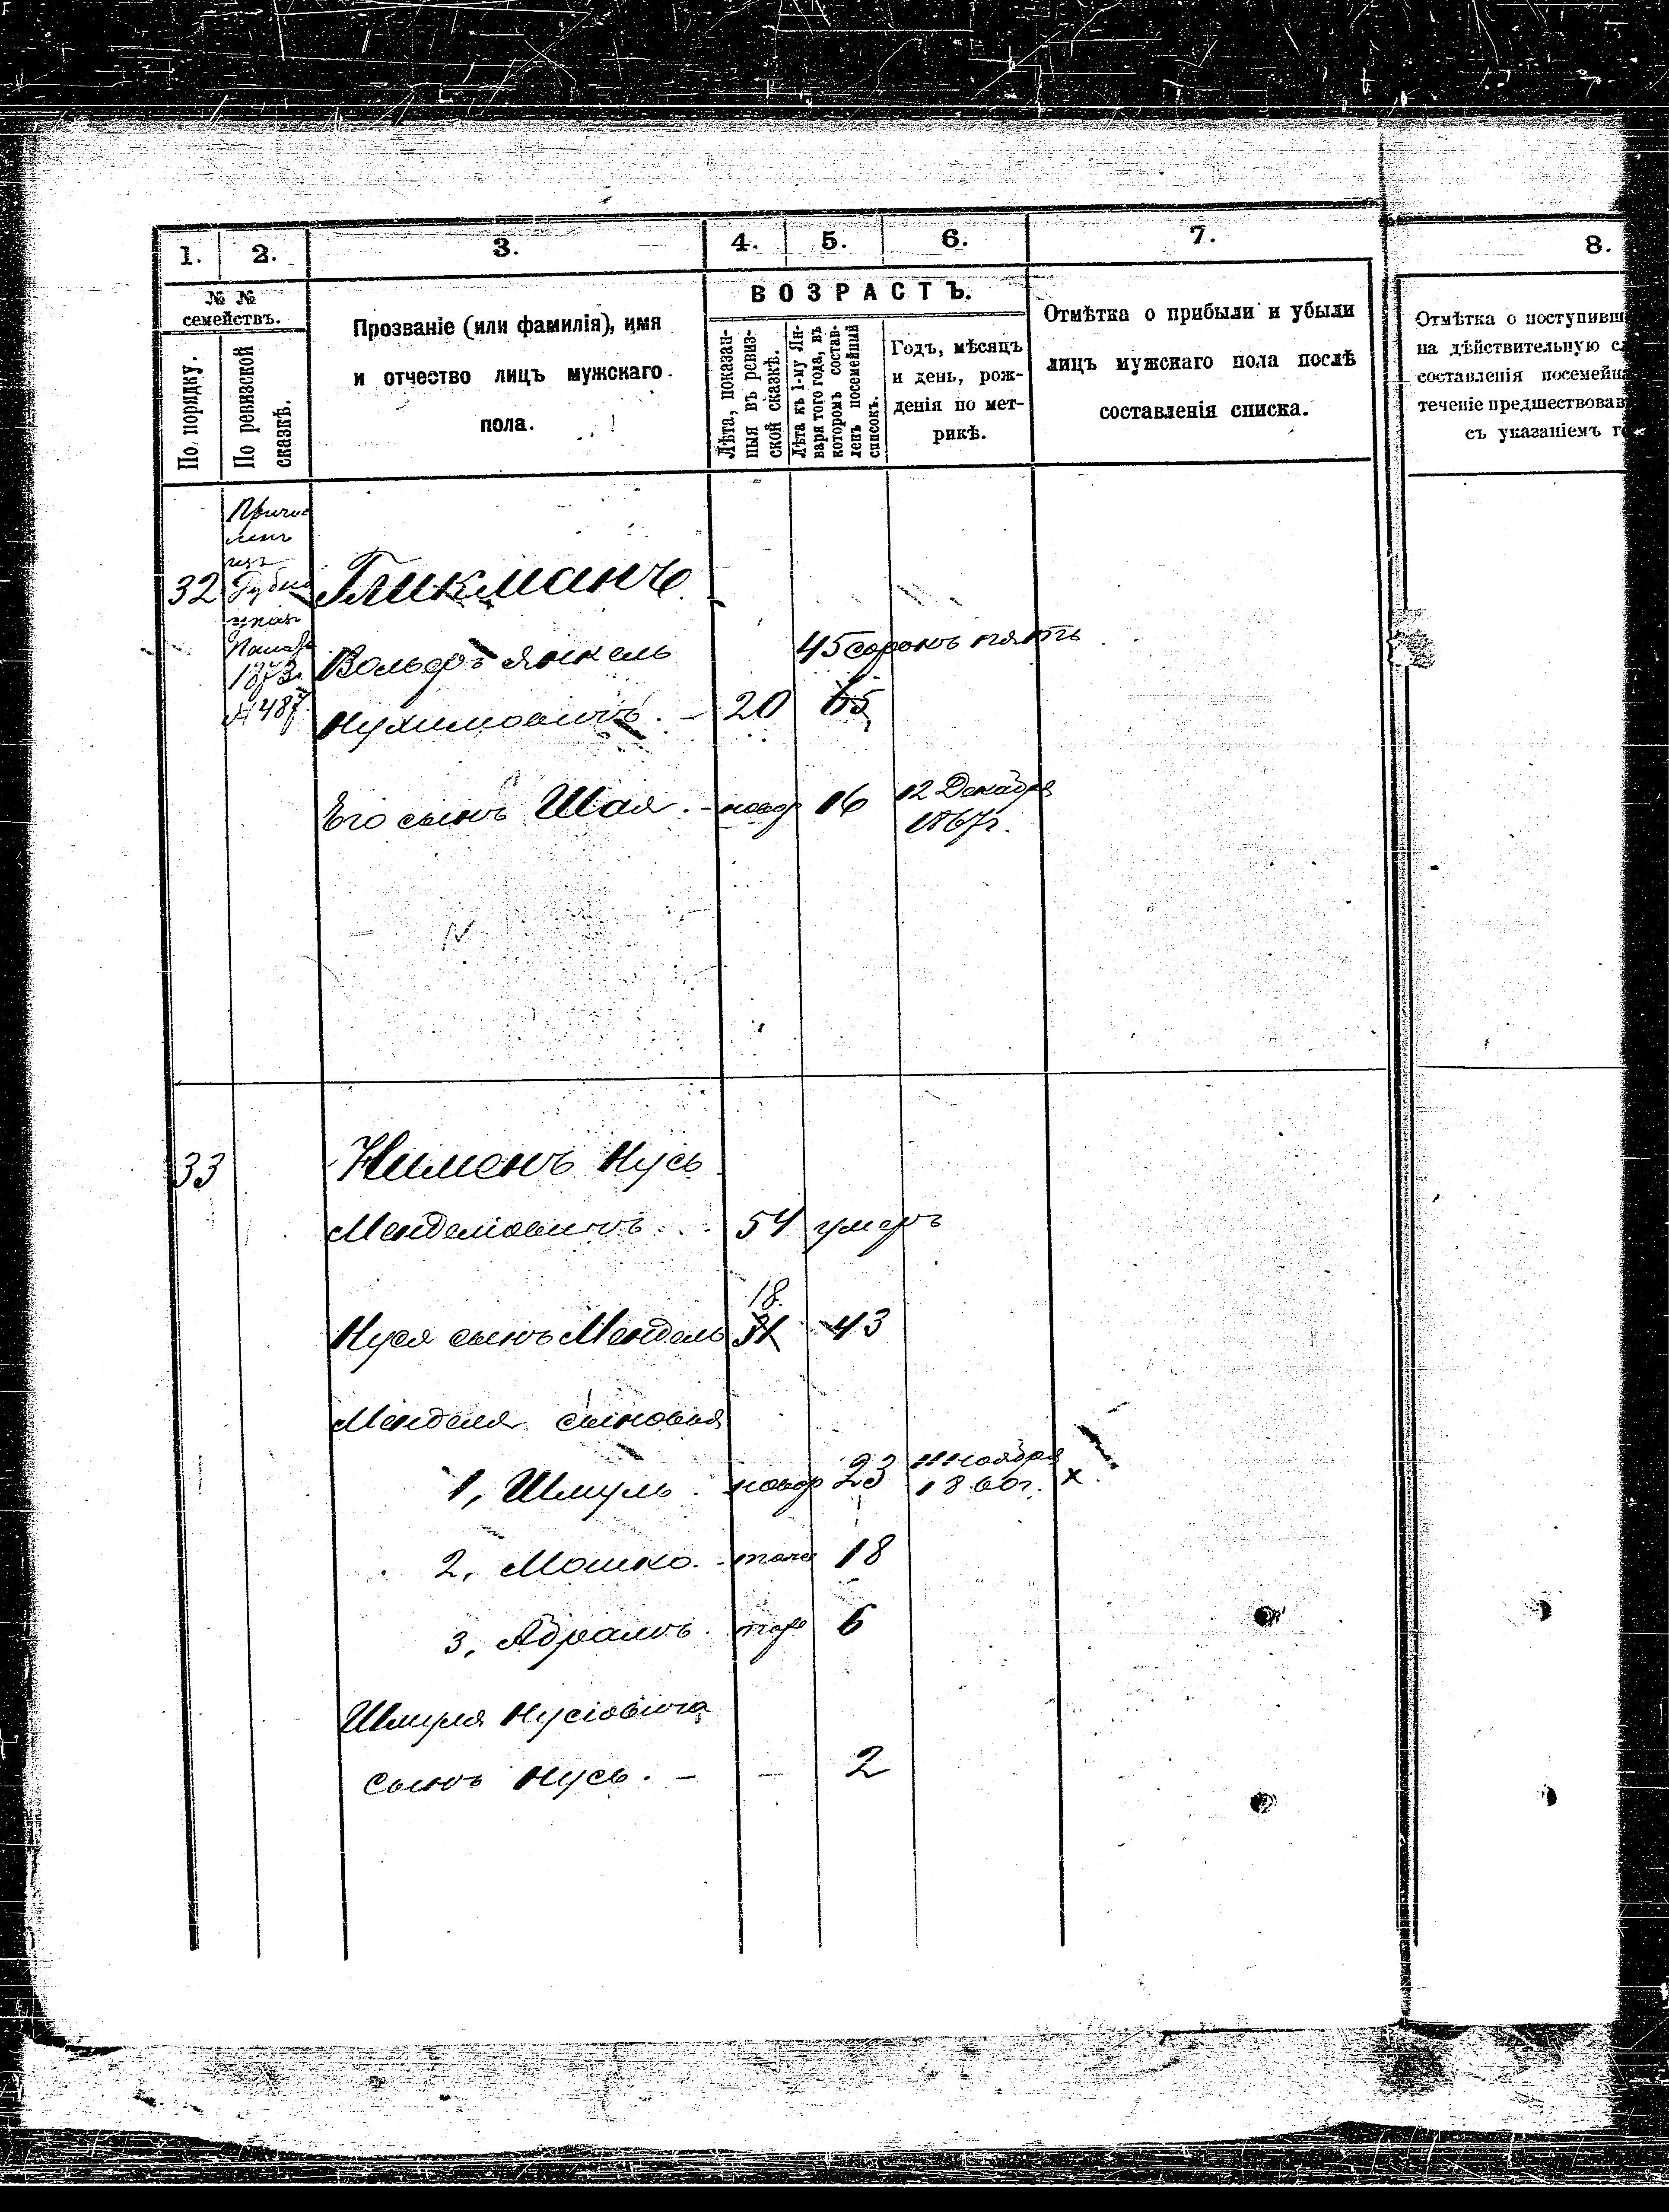 1.
2.
3.
4.
5.
6.
7.
8.
№ №
семействъ.
По порядку.
По ревизской
сказкѣ.
Прозваніе (или фамилія), имя
и отчество лицъ мужскаго
пола.
ВОЗРАСТЪ.
Лѣта, показан-
ныя въ ревиз-
ской сказкѣ.
Лѣта къ 1-му Ян-
варя того года, въ
которомъ состав-
ленъ посемейный
списокъ.
Годъ, мѣсяцъ
и день, рож-
денія по мет-
рикѣ.
Отмѣтка о прибыли и убыли
лицъ мужскаго пола послѣ
составленія списка.
Отмѣтка о поступивш
на дѣйствительную с
составленія посемейн
теченіе предшествовав
съ указаніемъ г
Причис
ленъ
изъ
32 Гликманъ
1873.
№ 487
Вольфъ Янкель 45 сорокъ пять
Нухимовичъ. - 20 65
Его сынъ Шая. - новор 16 12 Декабря
1867г.
33 Нименъ Нусь
Менделіовичъ 54 умеръ
18.
Нуся сынъ Мендель 31 43
Менделя сыновья
1, Шмуль. новор 23 11 Ноября
1860г. х
2, Мошко. - тоже 18
3, Абрамъ. тоже 6
Шмуля Нусіовича
сынъ Нусь. - - 2